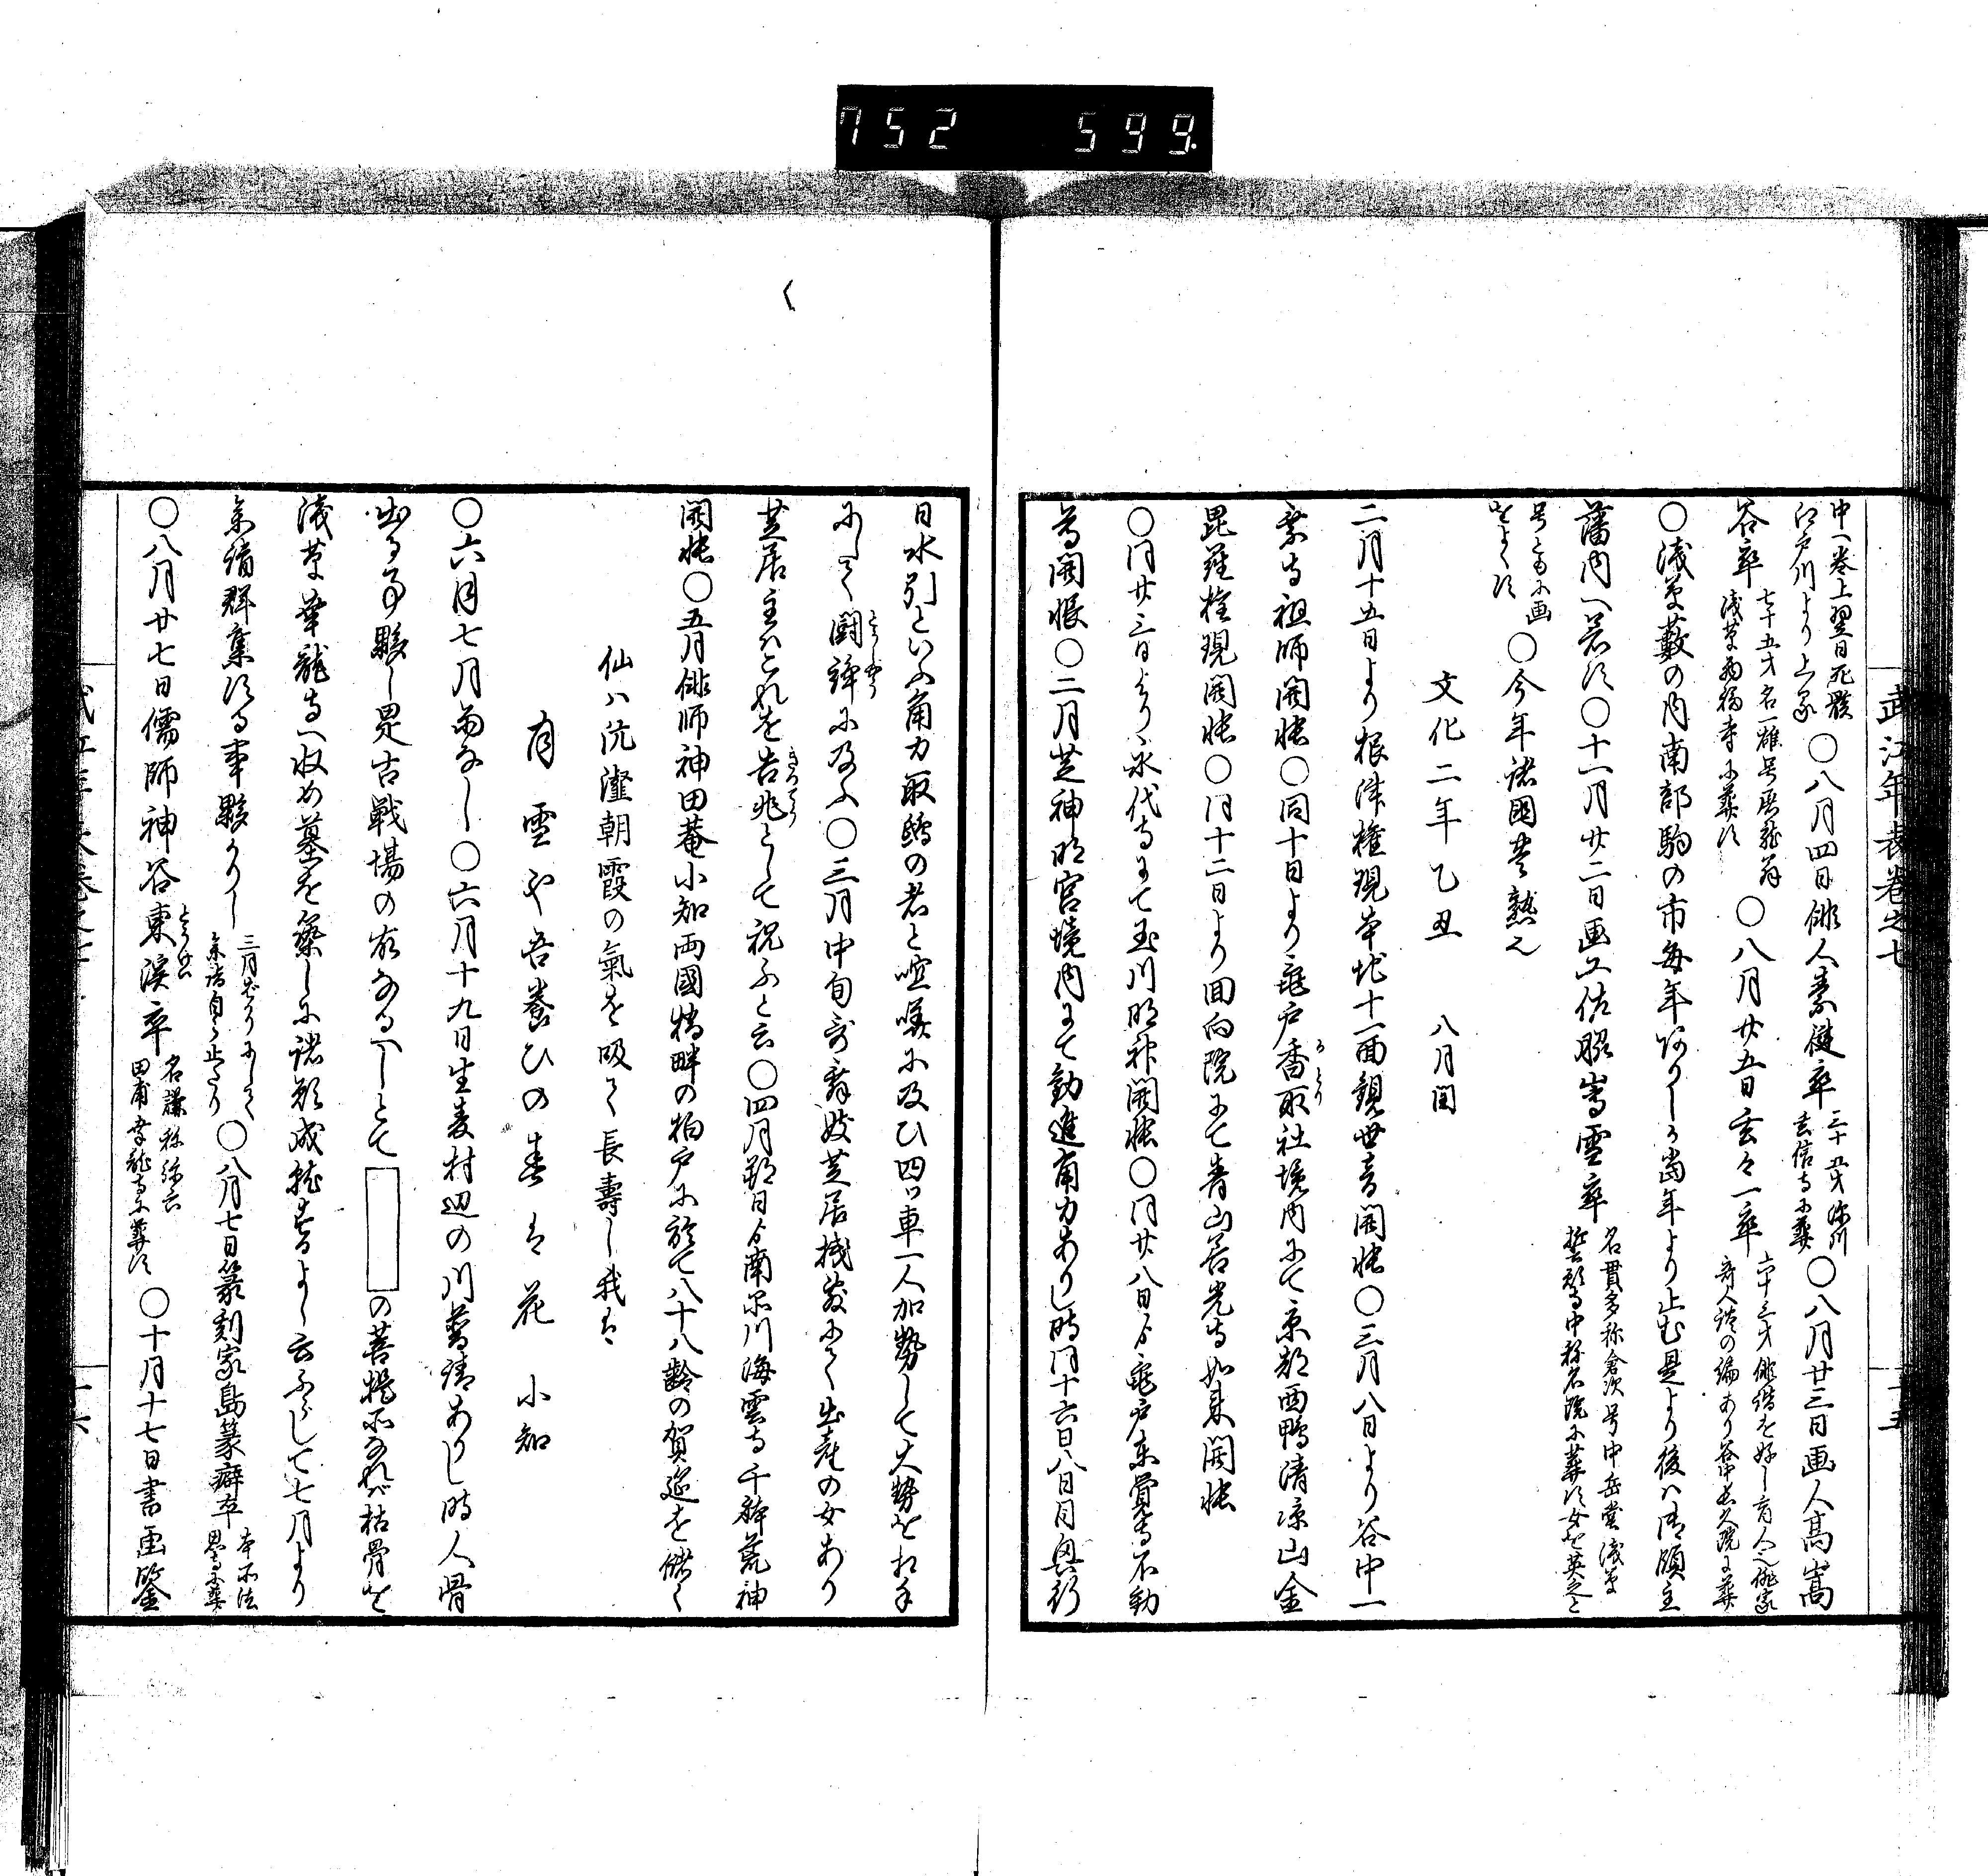 752 599.
武江年表卷之七
十五
中へ巻上翌日死骸
江戸川より上る
○八月四日俳人素健卒
三十五才深川
玄信寺ニ葬
○八月廿三日画人高嵩
谷卒
七十五才名一雄号屠龍翁
浅草 福寺に葬す
○八月廿五日玄々一卒
六十三才俳諧を好し盲人也俳家
奇人談の編あり谷中長久院に葬
○浅草藪の内南部駒の市毎年ありしが当年より止む是より後ハ御領主
藩内へ着す○十一月廿二日画工佐脇嵩雪卒
名貫多称倉次号中岳堂浅草
誓願寺中称名院に葬す女を英之と
号ともに画
をよくす
○今年諸国豊熟也
文化二年乙丑 八月閏
二月十五日より根津権現本地十一面観世音開帳○三月八日より谷中一
乗寺祖師開帳○同十日より亀戸香取社境内にて京都西鴨清凉山金
かとり
毘羅権現開帳○同十二日より回向院にて青山善光寺如来開帳
○同廿三日より永代寺にて玉川明神開帳○同廿八日より亀戸東覚寺不動
尊開帳○二月芝神明宮境内にて勧進角力ありし時同十六日八日目興行
日水引といふ角力取鴟の者と喧嘩に及ひ四ツ車一人加勢して大勢を相手
にして闘諍に及ふ○三月中旬歌舞妓芝居桟敷にて出産の女あり
とうじやう
芝居主ハこれを吉兆として祝ふと云○四月朔日より南品川海雲寺千躰荒神
きつてう
開帳○五月俳師神田菴小知両国橋畔の柏戸に於て八十八齢の賀莚を儲く
仙ハ沆瀣朝霞の氣を吸て長壽し我は
有雲や吾養ひの春は花 小知
○六月七月雨なし○六月十九日生麦村辺の川普請ありし時人骨
出る事夥し是古戦場の有なるべしとて の菩提所なれバ枯骨を
浅草華龍寺へ收め墓を築しに諸願成就するよし云ふらして七月より
参詣群集する事夥かりし
三月ばかりにして
参詣自ら止たり
○八月七日篆刻家島篆癖卒
本所法
恩寺ニ葬
○八月廿七日儒師神谷東渓卒
とうけい
名謙称弥六
田甫幸龍寺に葬す
○十月十七日書画鑒
十六